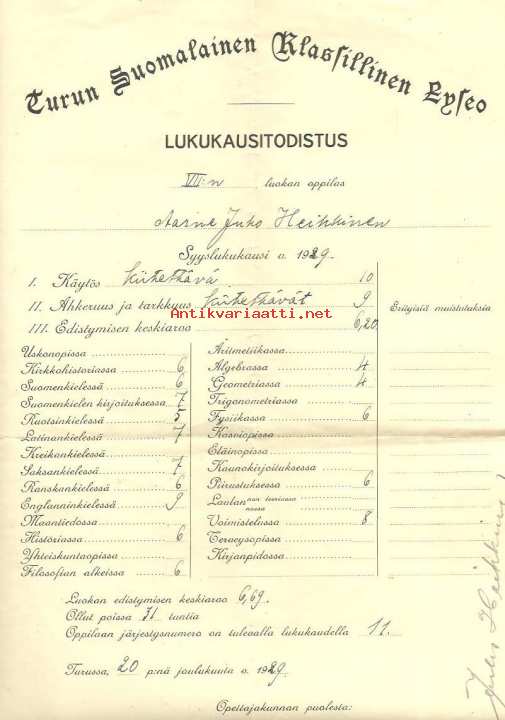 Turun Suomalainen Klassillinen Lyseo
LUKUKAUSITODISTUS
VII:n luokan oppilas
Aarne Juho Heikkinen
Syyslukukausi v. 1929.
I. Käytös kiitettävä 10
II. Ahkeruus ja tarkkuus kiitettävät 9
III. Edistymisen keskiarvo 6,20
Antikvariaatti.net
Erityisiä muistutuksia
Uskonopissa
Kirkkohistoriassa 6
Suomenkielessä 6
Suomenkielen kirjoituksessa 7
Ruotsinkielessä 5
Latinankielessä 7
Kreikankielessä
Saksankielessä 7
Ranskankielessä 6
Englanninkielessä 9
Maantiedossa
Historiassa 6
Yhteiskuntaopissa
Filosofian alkeissa 6
Aritmetiikassa
Algebrassa 4
Geometriassa 4
Trigonometriassa
Fysiikassa 6
Kasviopissa
Eläinopissa
Kaunokirjoituksessa
Piirustuksessa 6
Laulun
Voimistelussa 8
Terveysopissa
Kirjanpidossa
Luokan edistymisen keskiarvo 6,69.
Ollut poissa 71 tuntia
Oppilaan järjestysnumero on tulevalla lukukaudella 11.
Turussa, 20 p:nä joulukuuta v. 1929
Opettajakunnan puolesta:
Heikkinen